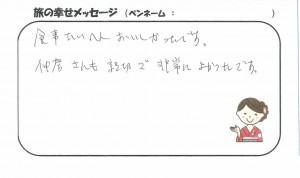 旅の幸せメッセージ (ペンネーム : )
食事たいへんおいしかったです。
仲居さんも親切で非常によかったです。